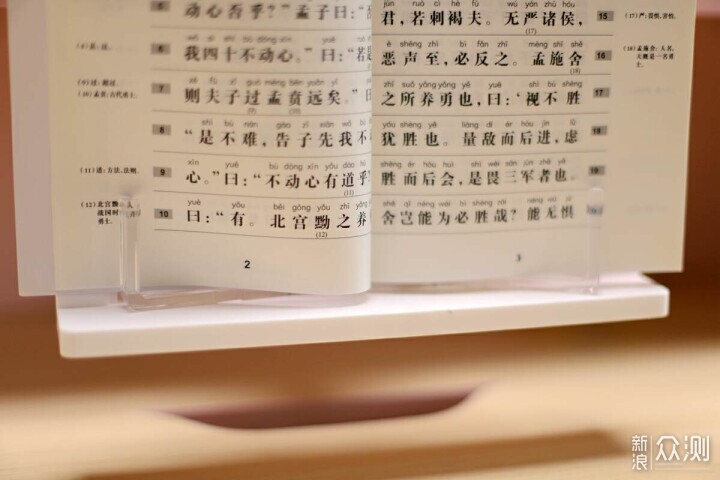 动心否乎？”孟子曰：
bú
wǒ sì shí bú dòng xīn yuē
6 我四十不动心。”曰：“若是
zé fū zǐ guò mèng bēn yuǎn yǐ yuē
7 则夫子过孟贲远矣。”曰
shì bù nán gào zǐ xiān wǒ bú
8 “是不难，告子先我不
xīn yuē bú dòng xīn yǒu dào hū
9 心。”曰：“不动心有道乎？
(11)
yuē yǒu běi gōng yǒu zhī yǎng
10 曰：“有。北宫黝之养
(12)
2
(8) 否：没。
(9) 过：超过。
(10) 孟贲：古代勇士。
(11) 道：方法，法则。
(12) 北宫黝：人
战国时
勇士。
jūn ruò cì hè fū wú yán zhū hóu
君，若刺褐夫。无严诸侯，
15
(17)
è shēng zhì bì fǎn zhī mèng shī shě
恶声至，必反之。孟施舍
16
(18)
zhī suǒ yǎng yǒng yě yuē shì bú shèng
之所养勇也，曰：‘视不胜
17
yóu shèng yě liàng dí ér hòu jìn lǜ
犹胜也。量敌而后进，虑
18
shèng ér hòu huì shì wèi sān jūn zhě yě
胜而后会，是畏三军者也。
19
shě qǐ néng wéi bì shèng zāi néng wú jù
舍岂能为必胜哉？能无惧
3
(17) 严：畏惧，害怕。
(18) 孟施舍：人名，
大概是一名勇
士。
新浪 众测